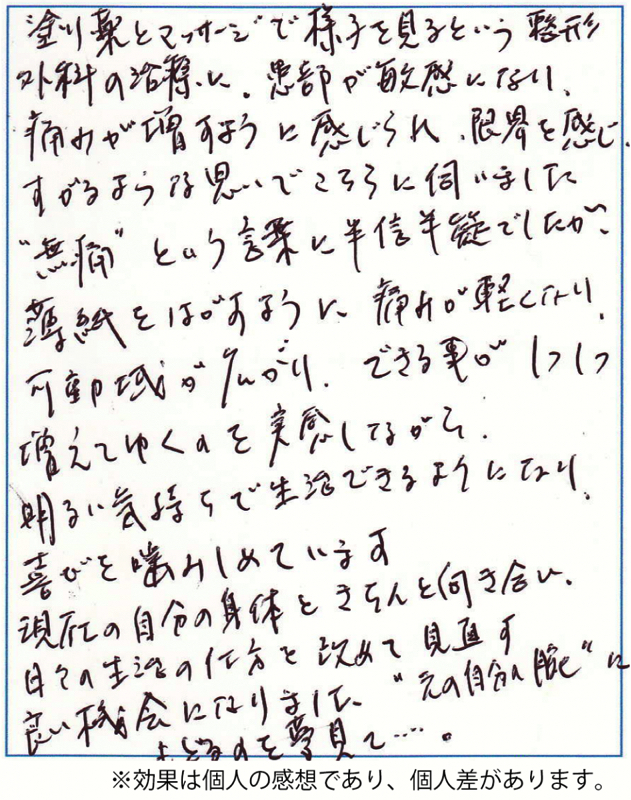 塗り薬とマッサージで様子を見るという整形
外科の治療に、患部が敏感になり、
痛みが増すように感じられ、限界を感じ、
すがるような思いでこちらに伺いました
"無痛"という言葉に半信半疑でしたが、
薄紙をはがすように痛みが軽くなり、
可動域が広がり、できる事が1つ1つ
増えてゆくのを実感しながら、
明るい気持ちで生活できるようになり、
喜びを噛みしめています
現在の自分の身体ときちんと向き合い、
日々の生活の仕方を改めて見直す
良い機会になりました、"元の自分の腕"に
もどるのを夢見て…。
※効果は個人の感想であり、個人差があります。